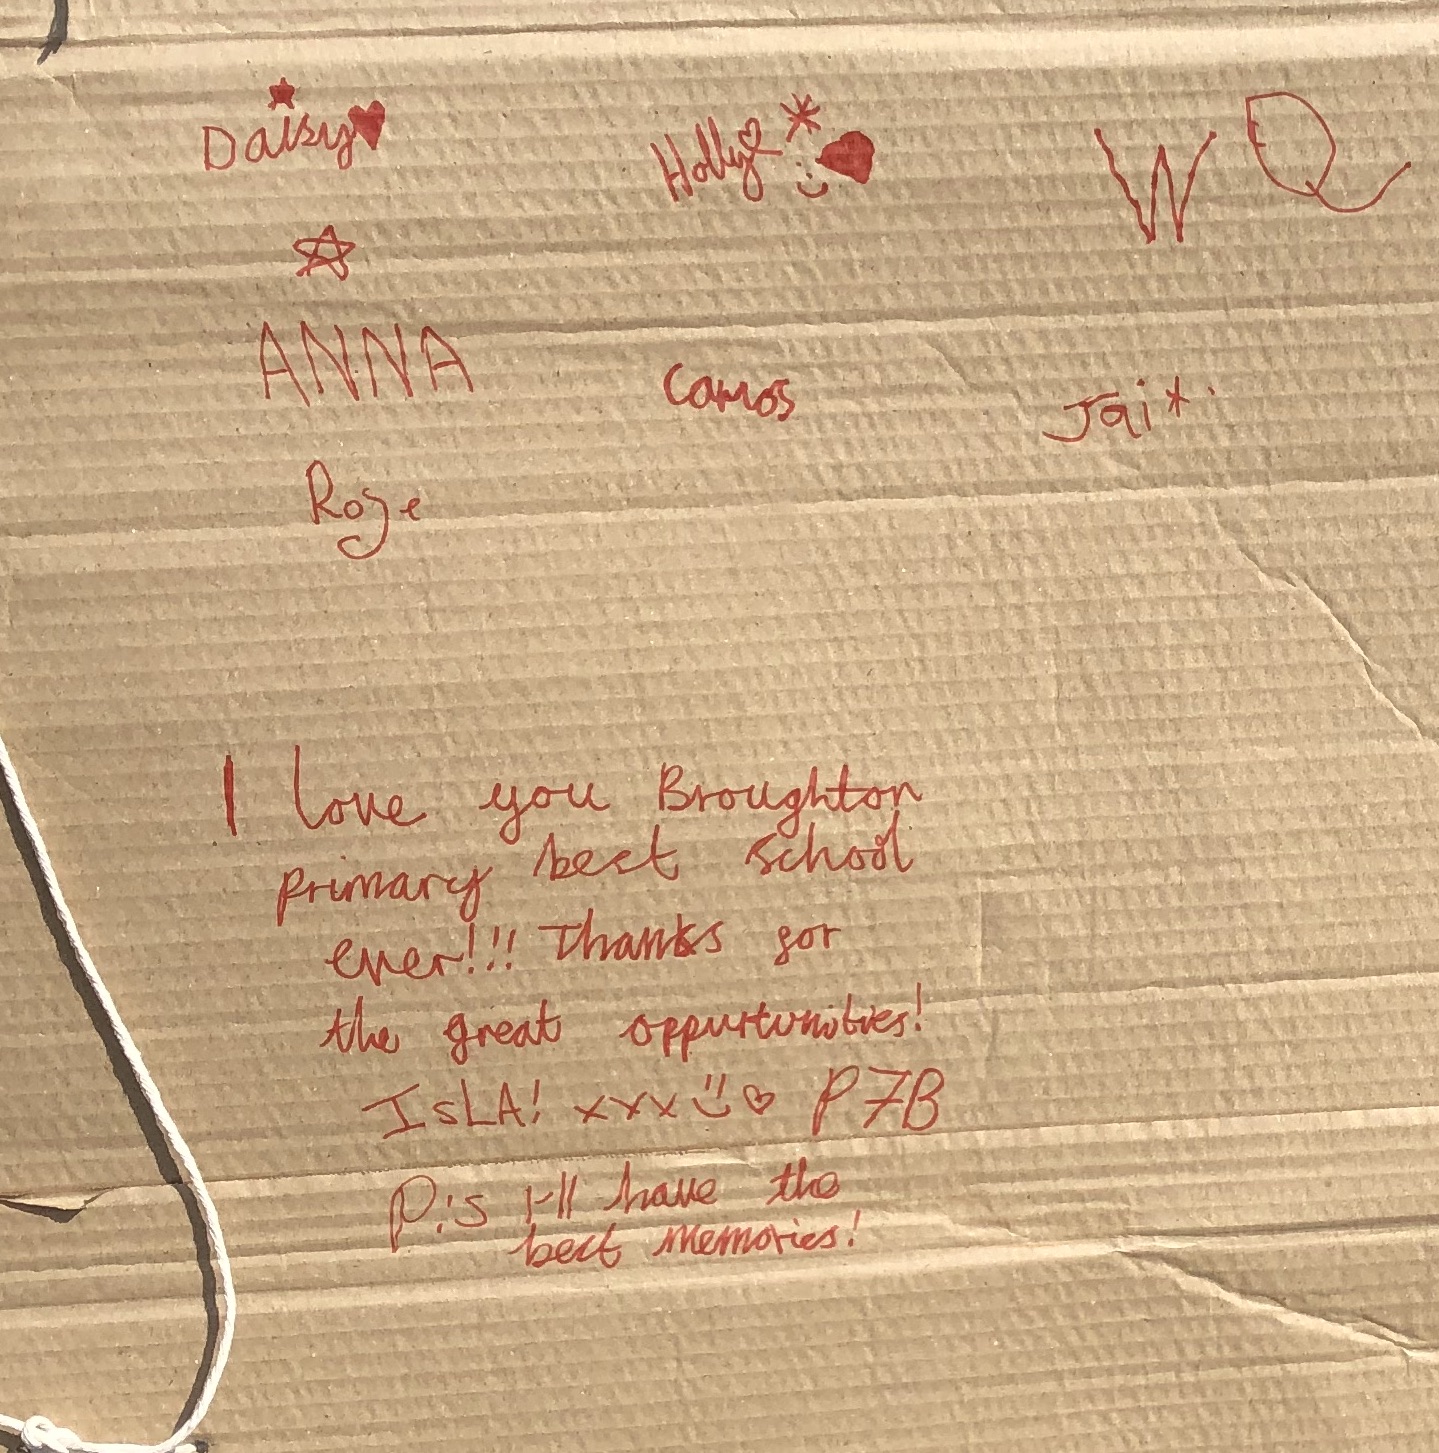 Daisy
Holly
W Q
ANNA
Jai
Rose
I love you Broughton
primary best school
ever!!! Thanks for
the great oppurtunities!
ISLA! xxx P7B
P.S I'll have the
best memories!